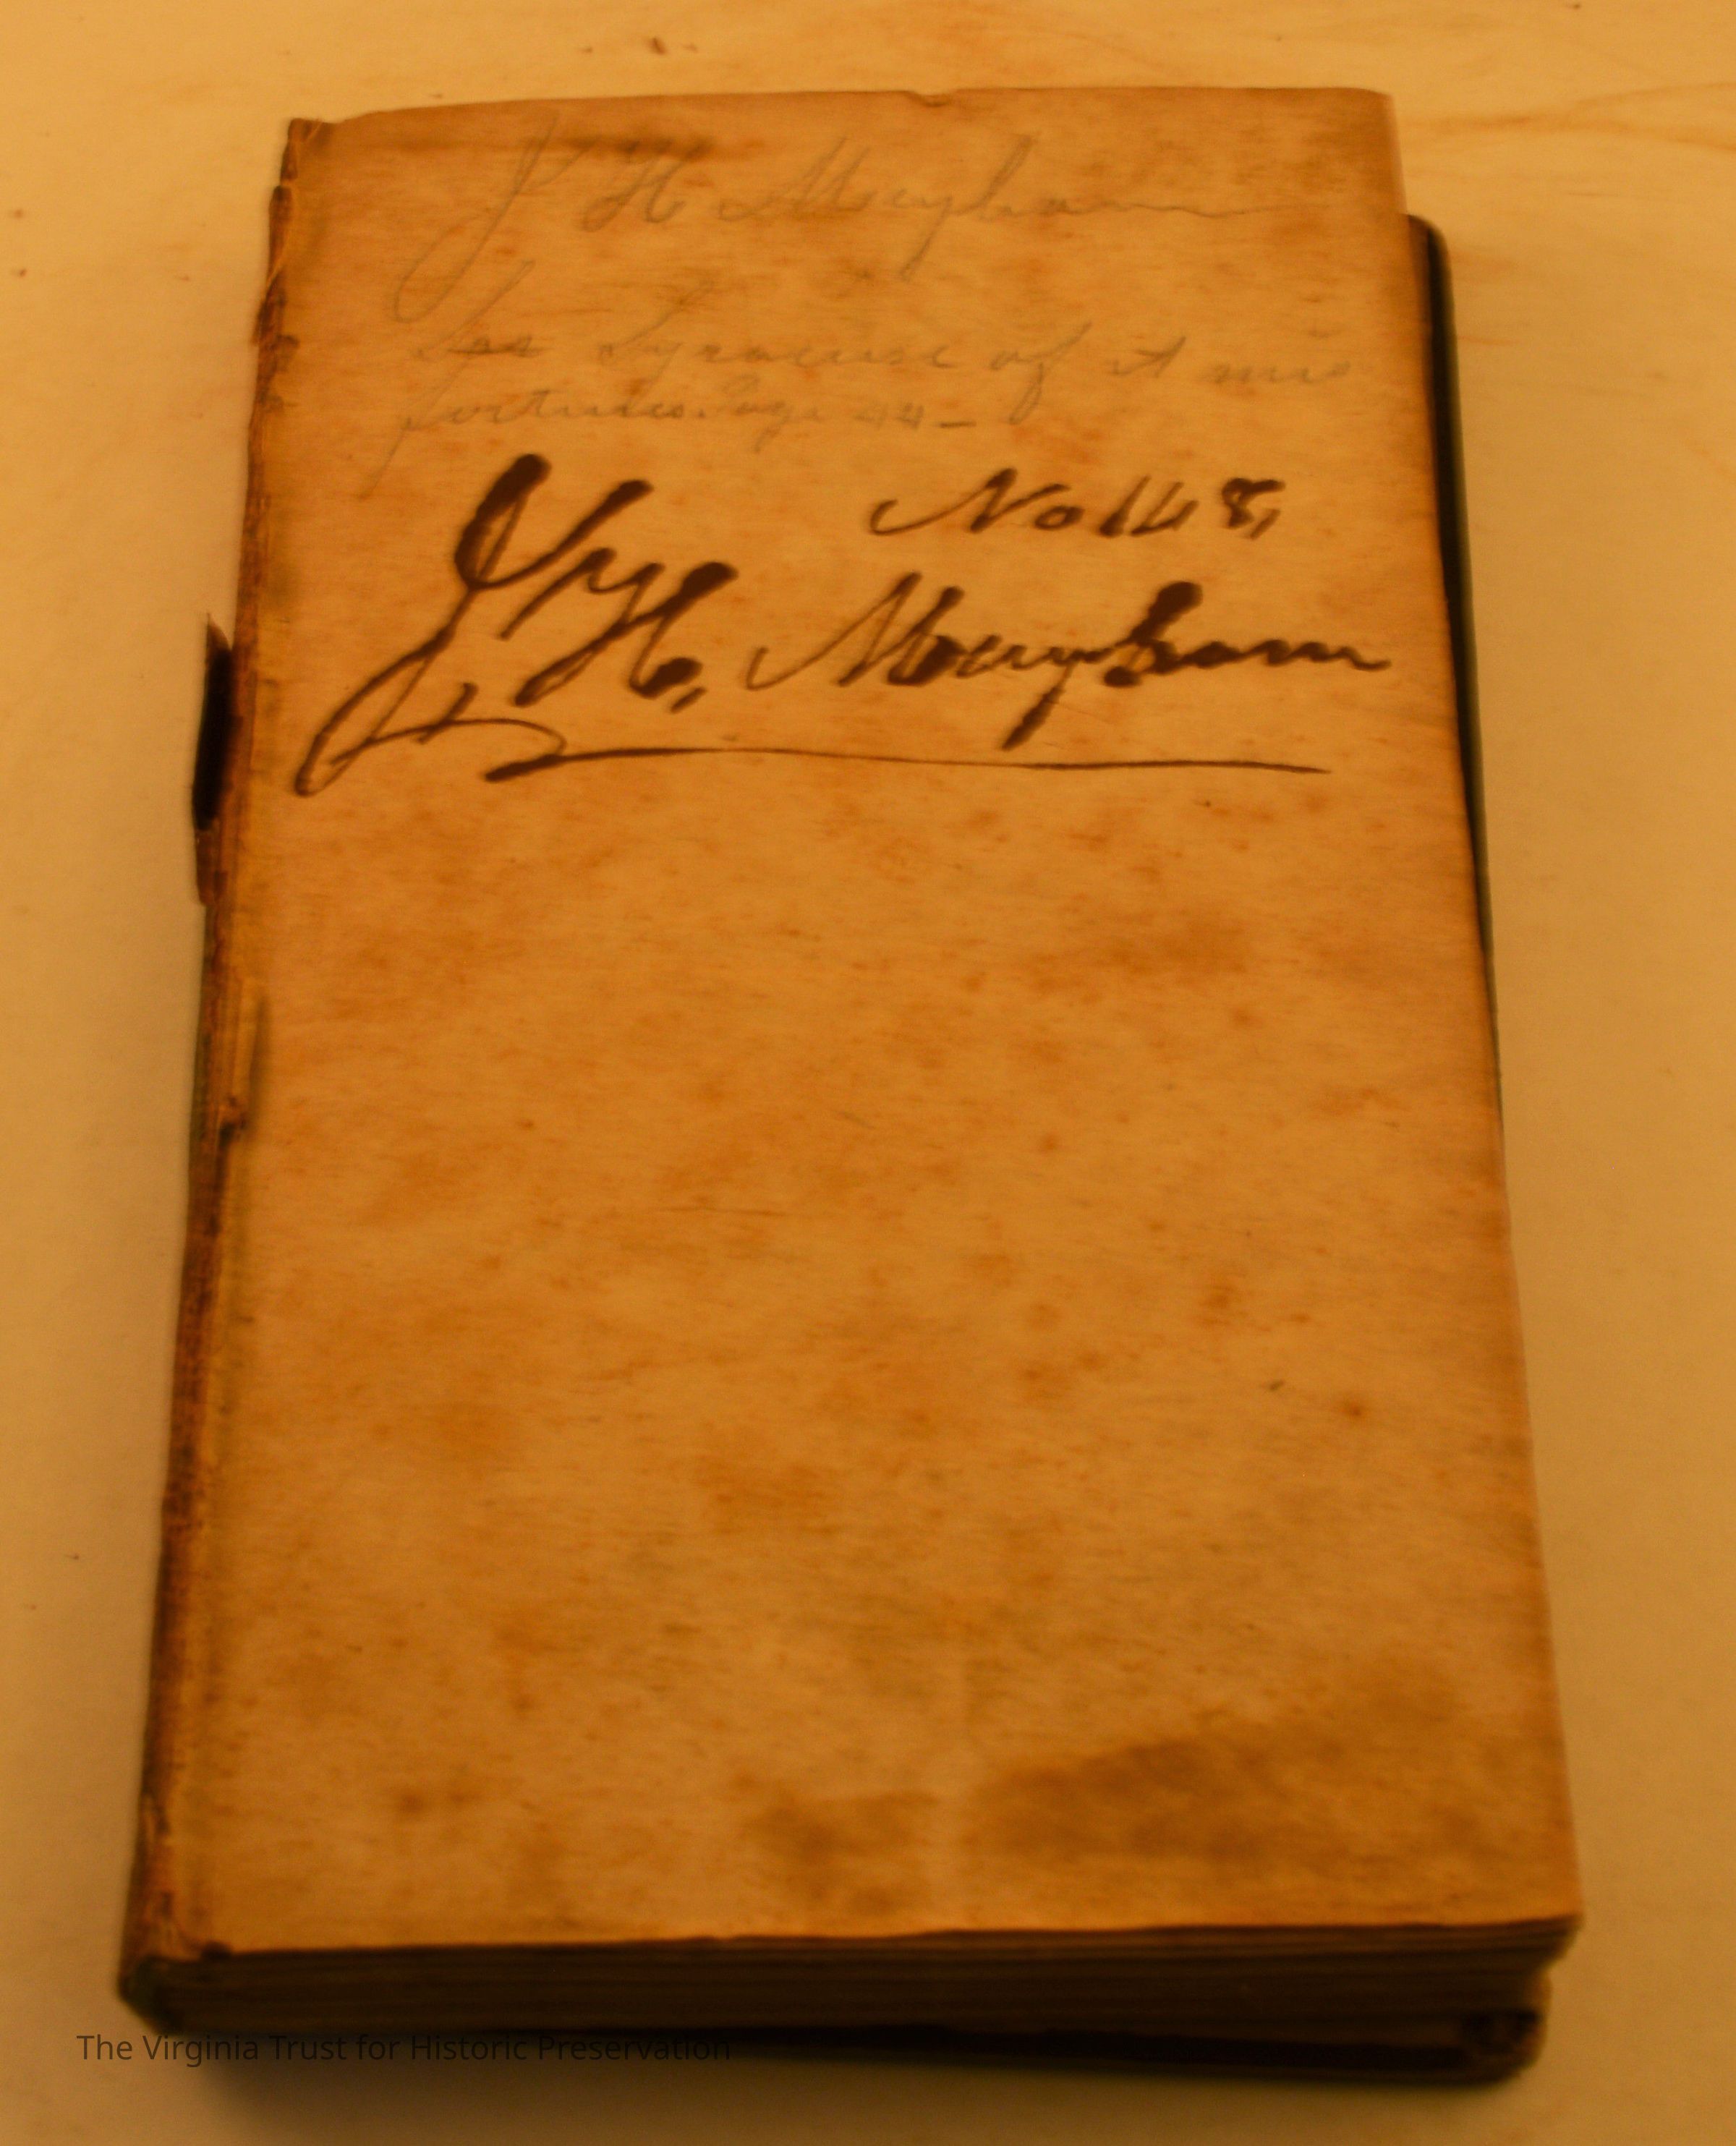 J H Maryham
See Syracuse of it mis
fortunes. Page 44 –
No 148,
J, H, Maryham
The Virginia Trust for Historic Preservation